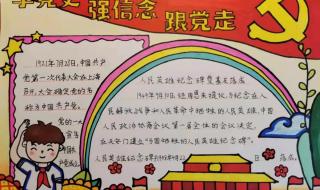 学党史 强信念 跟党走
1921年7月23日,中国共产
党第一次代表大会在上海
召开,大会确定党的名
称为中国共产党。
党的一
宣告
人民英雄纪念碑奠基石落成
1949年9月30日 纪念在人
民解放战争和人民革命中牺牲的人民英雄,中国
人民政治协商会议第一届全体的会议决定,
在天安门建立"为国牺牲的人民英雄碑"。
人民英雄纪念碑 落成。